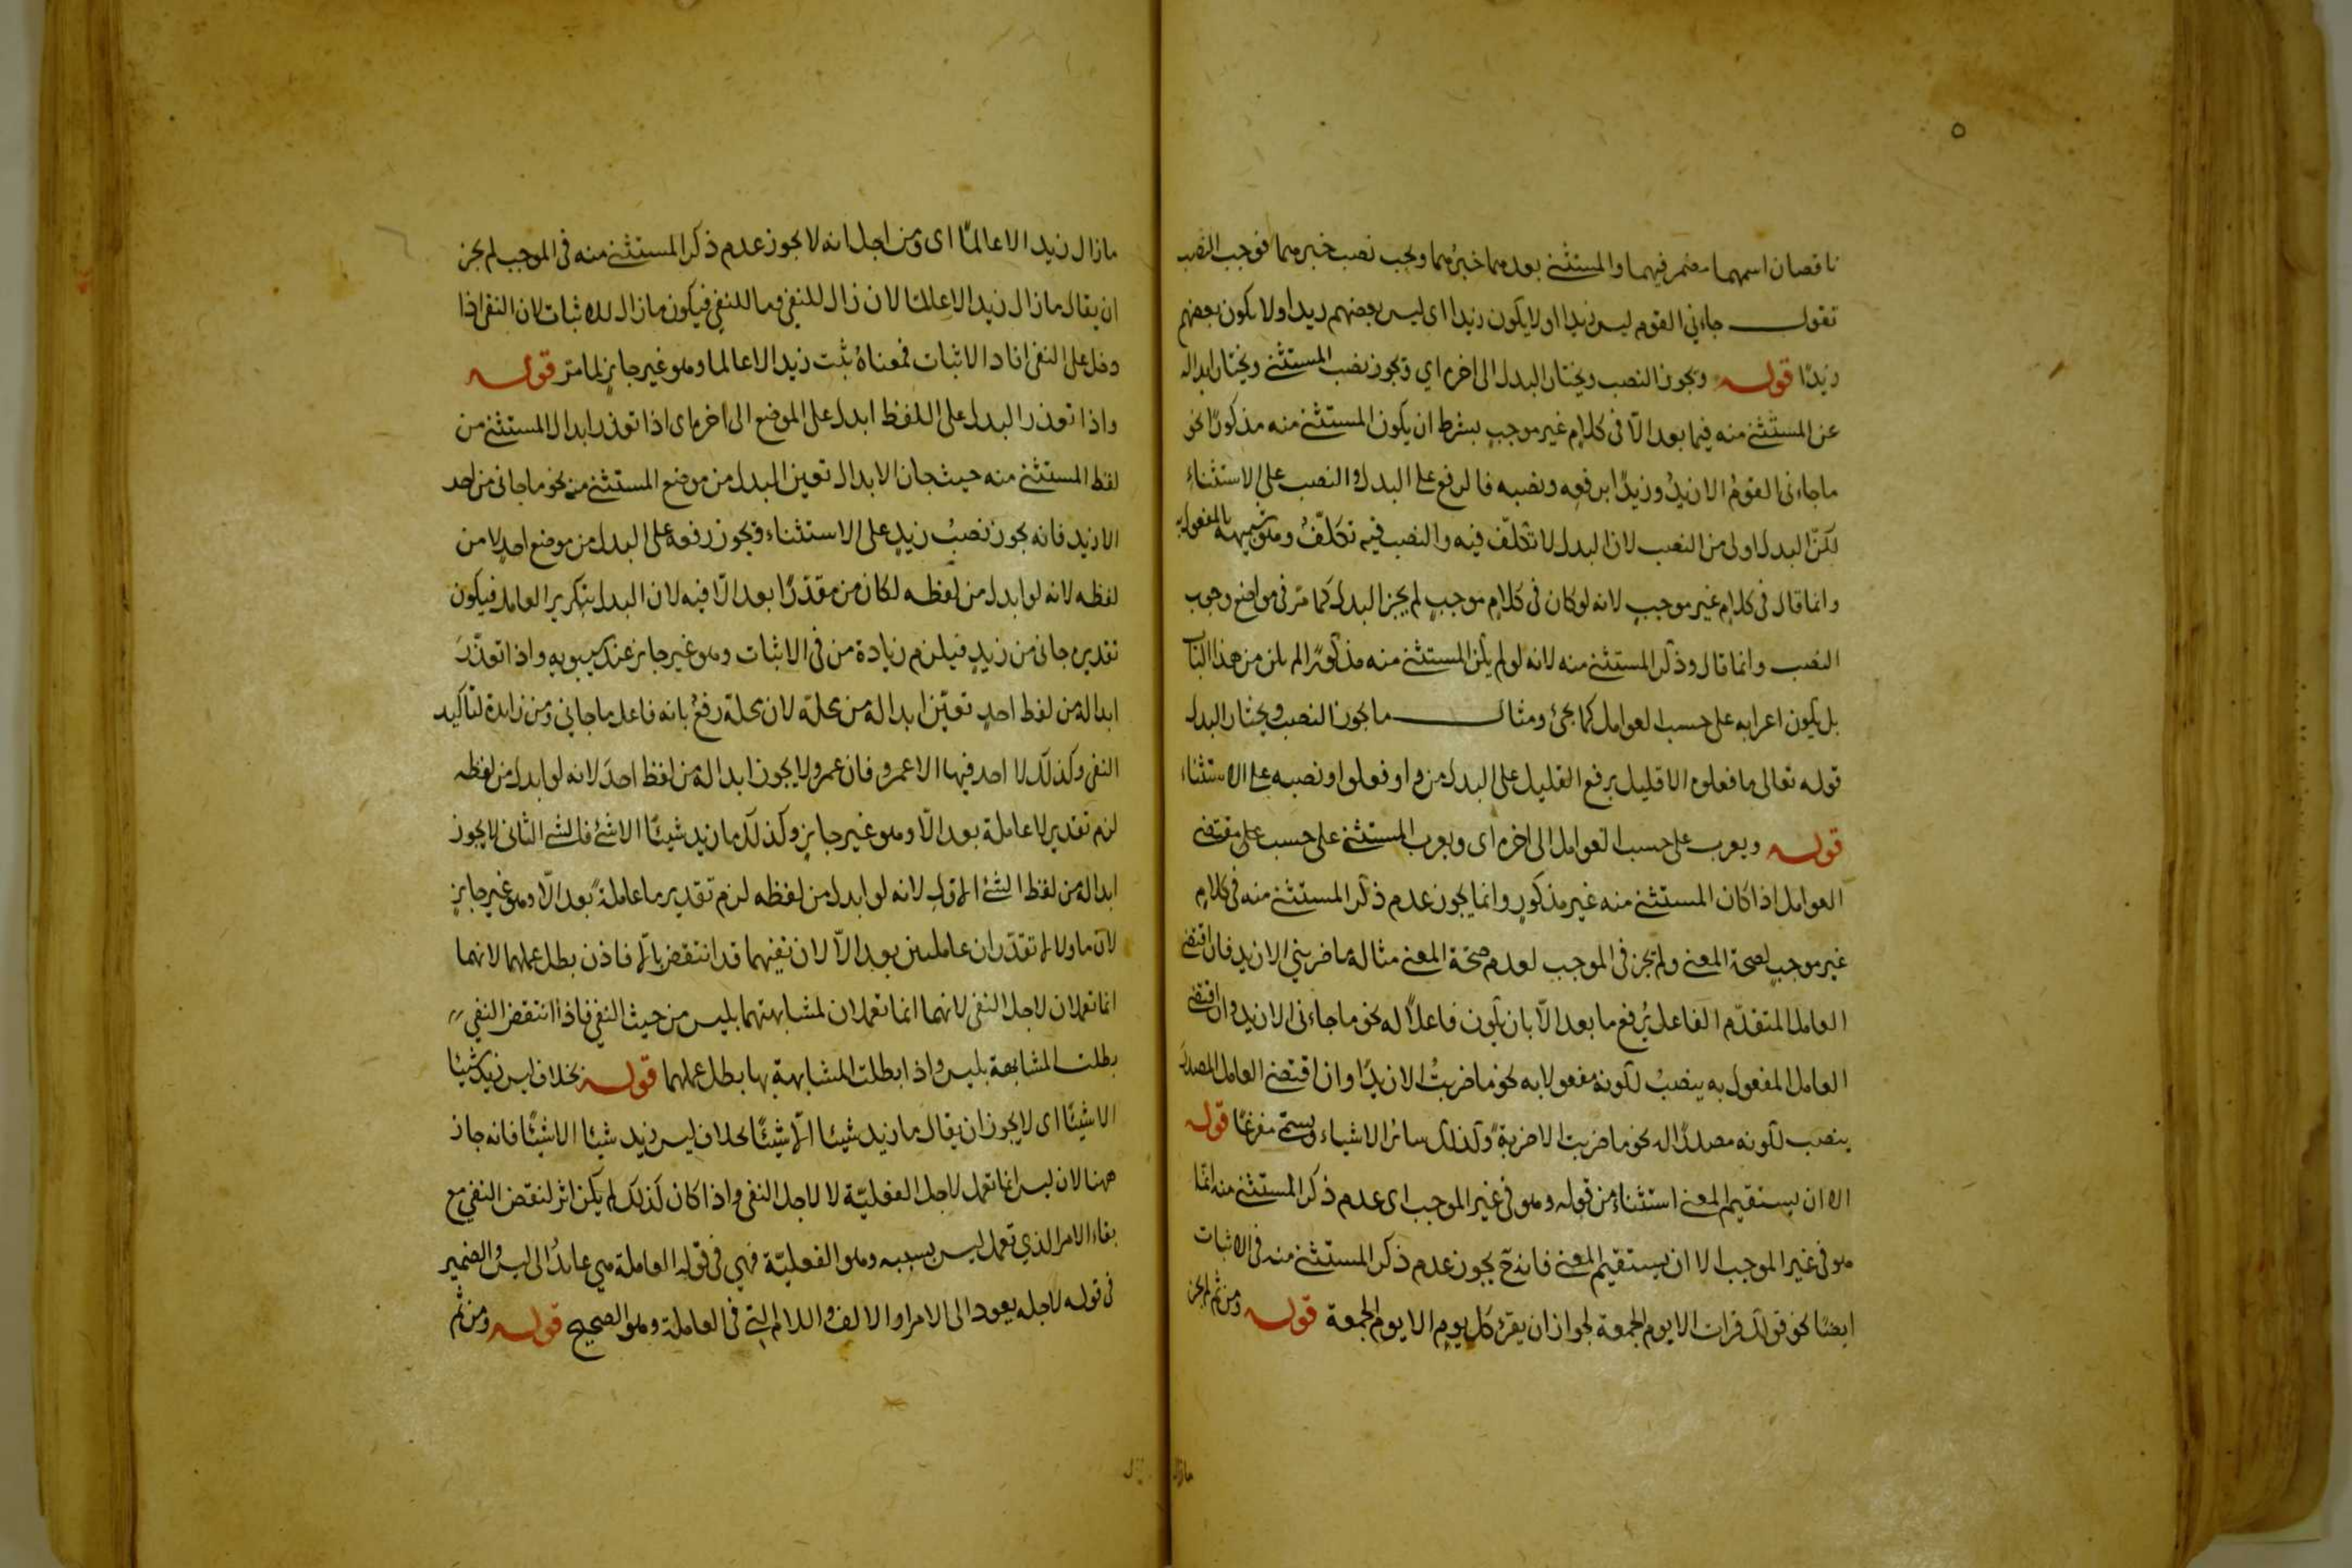 ٥
ناقصان اسمهما مضمر فيهما والمستثنى بعدهما خبرهما ويجب نصب خبرهما فوجب النصب
تقول جاءني القوم ليس زيدا او لا يكون زيدا اى ليس بعضهم زيدا ولا يكون بعضهم
زيدًا قوله ويجوز النصب ويختار البدل الى اخره اي ويجوز نصب المستثنى ويختار ابداله
عن المستثنى منه فيما بعد الّا فى كلامٍ غير موجبٍ بشرط ان يكون المستثنى منه مذكورًا نحو
ماجاءنى القومُ الا زيدٌ وزيدًا برفعه ونصبه فالرفع على البدل والنصب على الاستثناءِ
لكنّ البدل اولى من النصب لان البدل لا تكلّف فيه والنصب فيه تكلّفٌ وهو تشبيهه بالمفعول به
وانما قال فى كلامٍ غير موجبٍ لانه لو كان فى كلامٍ موجبٍ لم يجز البدل كما مرّ فى مواضع وجوب
النصب وانما قال وذكر المستثنى منه لانه لو لم يكن المستثنى منه مذكورًا لم يكن من هذا الباب
بل يكون اعرابه على حسب العوامل كما يجئ ومثال ما يجوز النصب ويختار البدل
قوله تعالى ما فعلوه الا قليل برفع القليل على البدل من واو فعلوا ونصبه على الاستثناء
قوله ويعرب على حسب العوامل الى اخره اى ويعرب المستثنى على حسب على مقتضى
العوامل اذا كان المستثنى منه غير مذكورٍ وانما يجوز عدم ذكر المستثنى منه فى كلامٍ
غير موجبٍ لصحة المعنى ولم يجز فى الموجب لعدم صحّة المعنى مثاله ما ضربني الا زيد فان اقتضى
العامل المتقدّم الفاعل يُرفع ما بعد الّا بان يكون فاعلاً له نحو ماجاءنى الا زيد وان اقتضى
العامل المفعول به ينصبُ لكونه مفعولا به نحو ما ضربتُ الا زيدًا وان اقتضى العامل المصدرَ
ينصب لكونه مصدرًا له نحو ما ضربت الا ضربةً وكذلك سائر الاشياء ويسمّى مفرغًا قوله
الا ان يستقيم المعنى استثناء من قوله وهو فى غير الموجب اى عدم ذكر المستثنى منه انما
هو فى غير الموجب الا ان يستقيم المعنى فانه ح يجوز عدم ذكر المستثنى منه فى الاثبات
ايضًا نحو قولك قرات الا يوم الجمعة لجواز ان يقرء كل يومٍ الا يوم الجمعة قوله ومن ثم لم يجز
مازال
مازال زيد الا عالمًا اى ومن اجل انه لا يجوز عدم ذكر المستثنى منه فى الموجب لم يجز
ان يقال مازال زيد الا عالما لان زال للنفى وما للنفى فيكون مازال للاثبات لان النفى اذا
دخل على النفى افاد الاثبات فمعناهُ ثبت زيد الا عالما وهو غير جايزٍ لما مرّ قوله
واذا تعذر البدل على اللفظ ابدل على الموضع الى اخره اى اذا تعذر ابدال المستثنى من
لفظ المستثنى منه حيث جاز الابدال تعين البدل من موضع المستثنى منه نحو ماجانى من احد
الا زيد فانه يجوز نصبُ زيدٍ على الاستثناء ويجوز رفعه على البدل من موضع احدٍ لا من
لفظه لانه لو ابدل من لفظه لكان من مقدّرًا بعد الّا فيه لان البدل بتكرير العامل فيكون
تقديره جانى من زيدٍ فيلزم زيادة من فى الاثبات وهو غير جايز عند سيبويهِ واذا تعذّرَ
ابداله من لفظ احدٍ تعيّن ابداله من محلّه لان محله رفعٌ بانه فاعل ماجاني ومن زايدة لتاكيد
النفى وكذلك لا احد فيها الا عمرو فان عمرو لا يجوز ابداله من لفظ احدَ لانه لو ابدل من لفظه
لزم تقدير لا عاملة بعد الّا وهو غير جايزٍ وكذلك ما زيد شيئًا الا شئ فالشئ الثانى لا يجوز
ابداله من لفظ الشئ الاول لانه لو ابدل من لفظه لزم تقدير ما عاملةً بعد الّا وهو غير جايزٍ
لانّ ما ولا لم تقدّران عاملتين بعد الّا لان نفيهما قد انتقض بالّا فاذن بطل عملهما لانهما
انما تعملان لاجل النفى لانهما انما تعملان لمشابهتهما بليس من حيث النفى فاذا انتقض النفى
بطلت المشابهة بليس واذا بطلت المشابهة بها بطل عملهما قوله بخلاف ليس زيد شيئا
الا شيئًا اى لا يجوز ان يقال ما زيد شيئا الّا شيئًا بخلاف ليس زيد شيئا الا شيئًا فانه جاز
ههنا لان ليس انما تعمل لاجل الفعليّة لا لاجل النفى واذا كان كذلك لم يكن اثر لنقض النفى مع
بقاء الامر الذي تعمل ليس بسببه وهو الفعليّة فهي فى قوله العاملة هي عايدٌ الى ليس والضمير
فى قوله لاجله يعود الى الامر او الالف واللام التى فى العاملة وهو الصحيح قوله ومن ثم